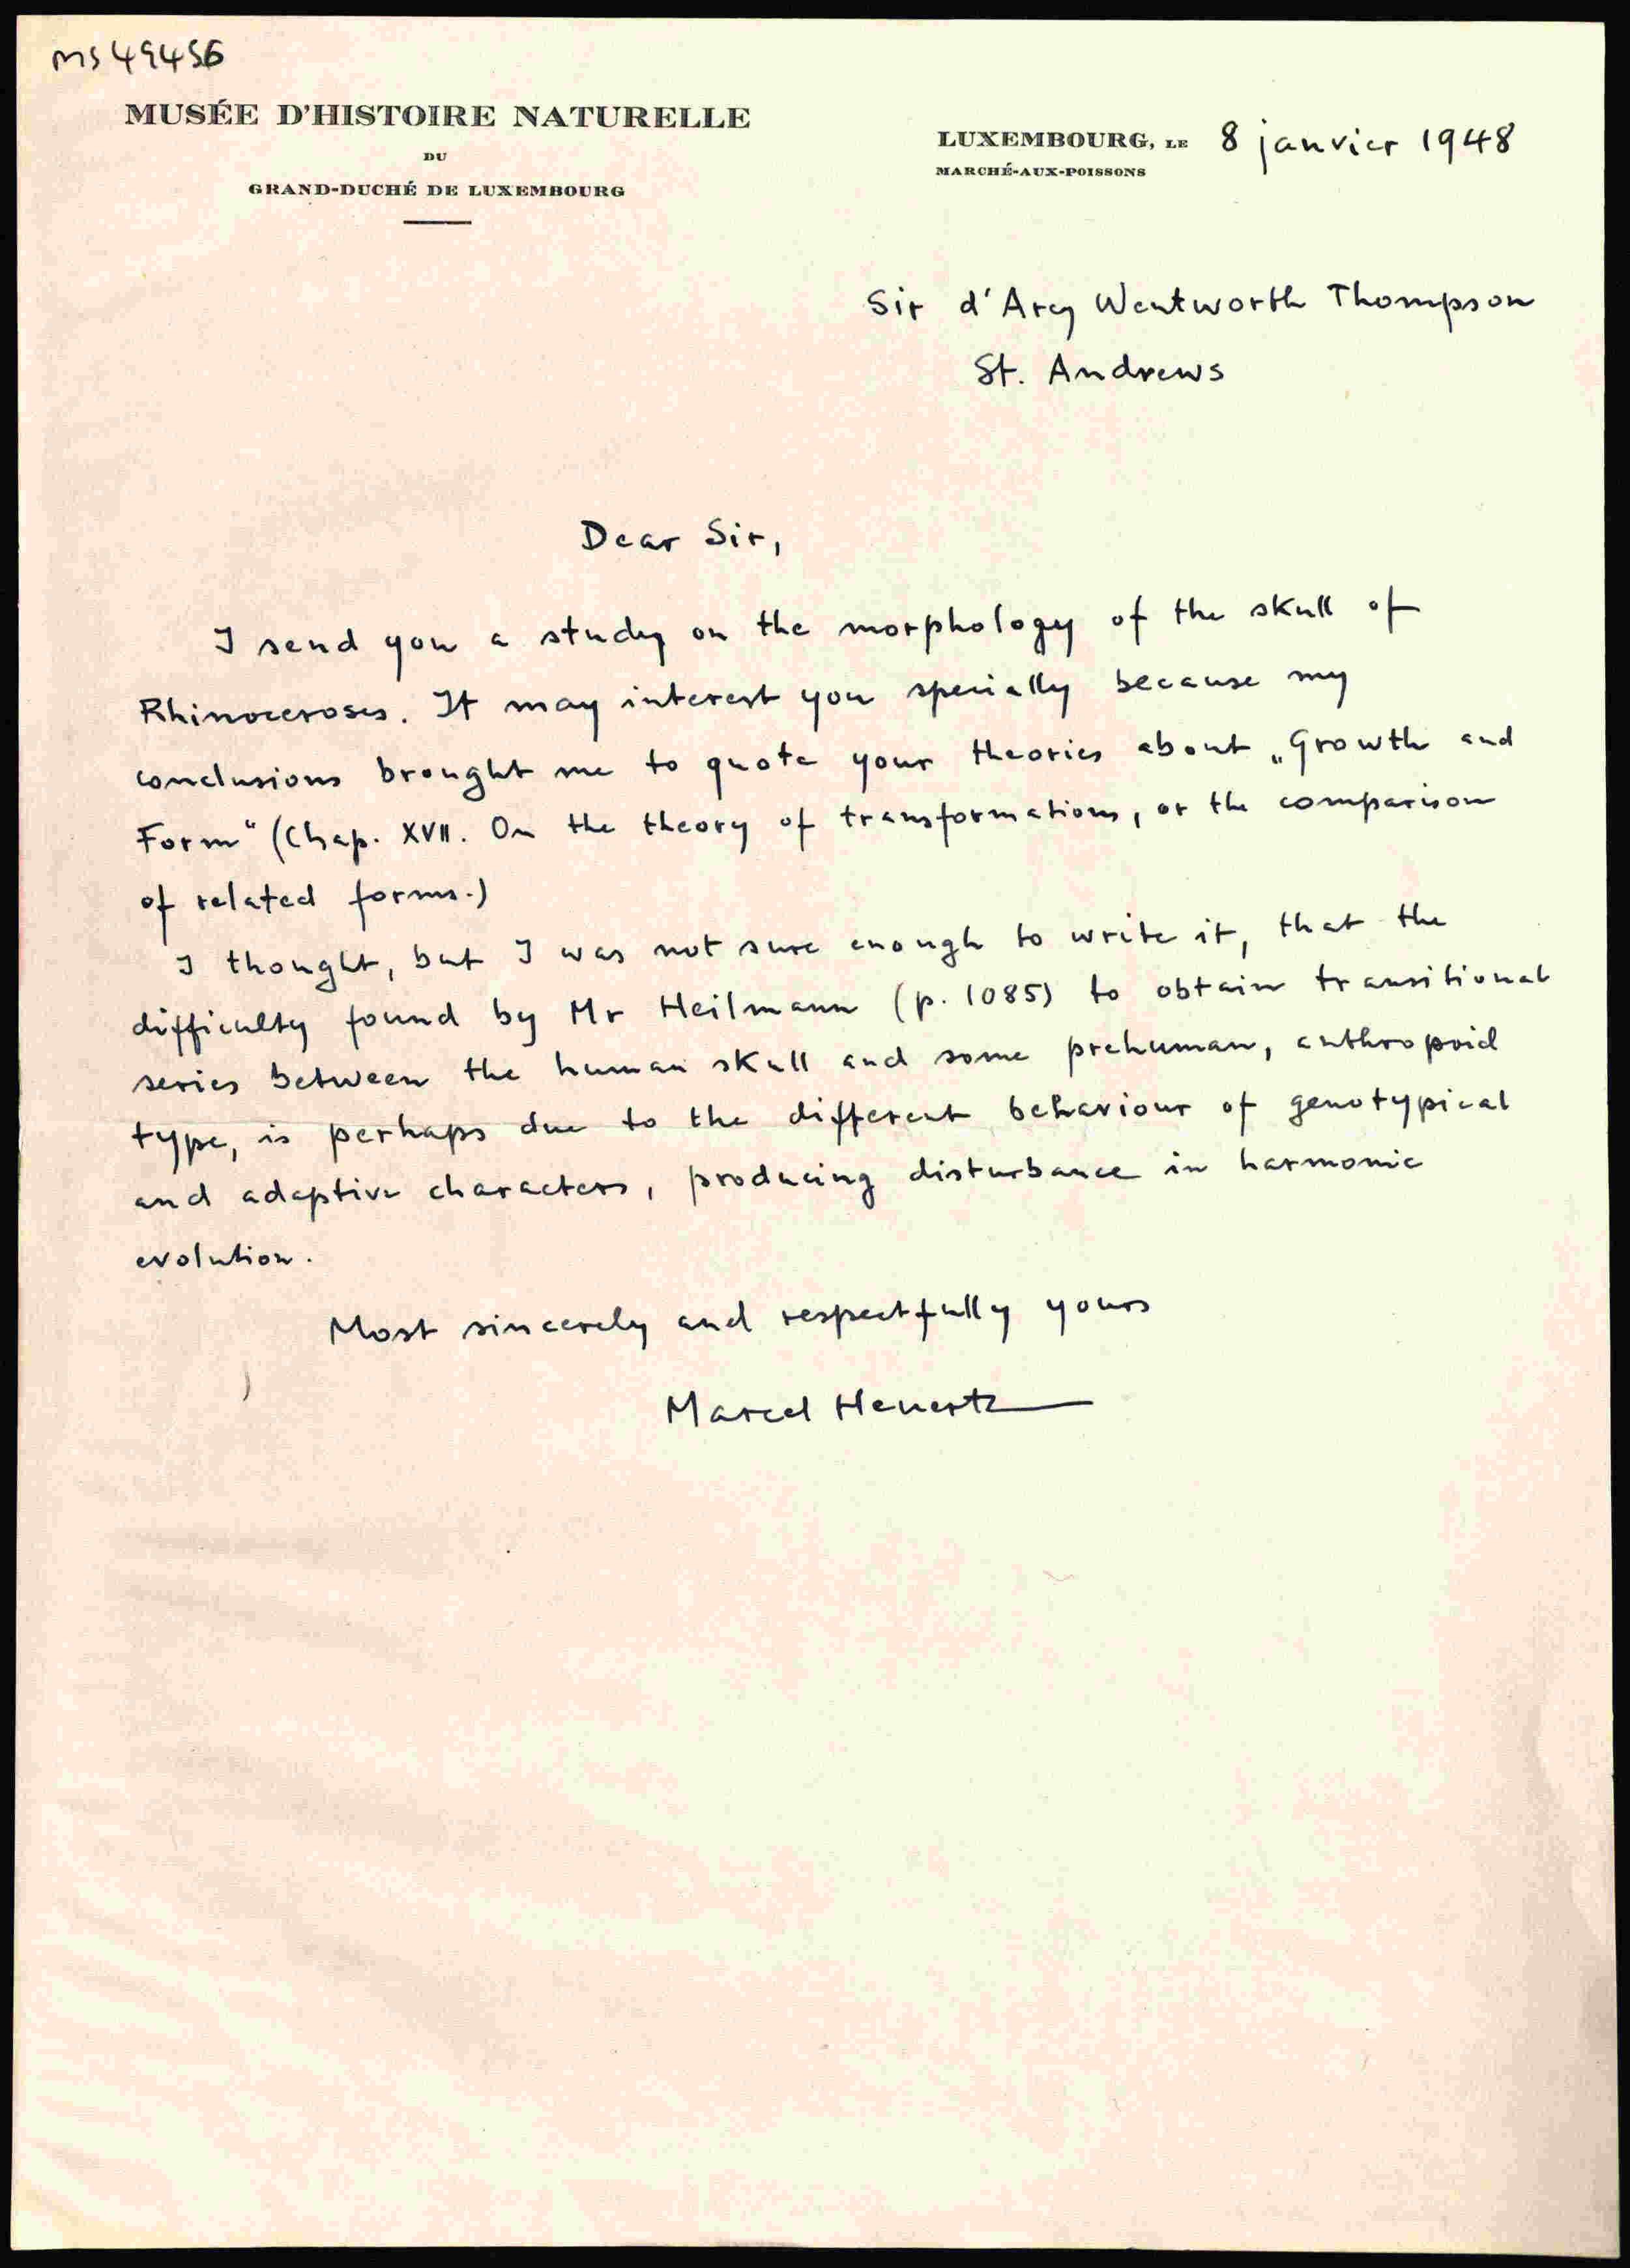 MS 49456
MUSÉE D'HISTOIRE NATURELLE
DU
GRAND-DUCHÉ DE LUXEMBOURG
LUXEMBOURG, LE 8 janvier 1948
MARCHÉ-AUX-POISSONS
Sir d'Arcy Wentworth Thompson
St. Andrews
Dear Sir,
I send you a study on the morphology of the skull of
Rhinoceroses. It may interest you specially because my
conclusions brought me to quote your theories about „Growth and
Form“ (Chap. XVII. On the theory of transformations, or the comparison
of related forms.)
I thought, but I was not sure enough to write it, that the
difficulty found by Mr Heilmann (p. 1085) to obtain transitional
series between the human skull and some prehuman, anthropoid
type, is perhaps due to the different behaviour of genotypical
and adaptive characters, producing disturbance in harmonic
evolution.
Most sincerely and respectfully yours
Marcel Heuertz